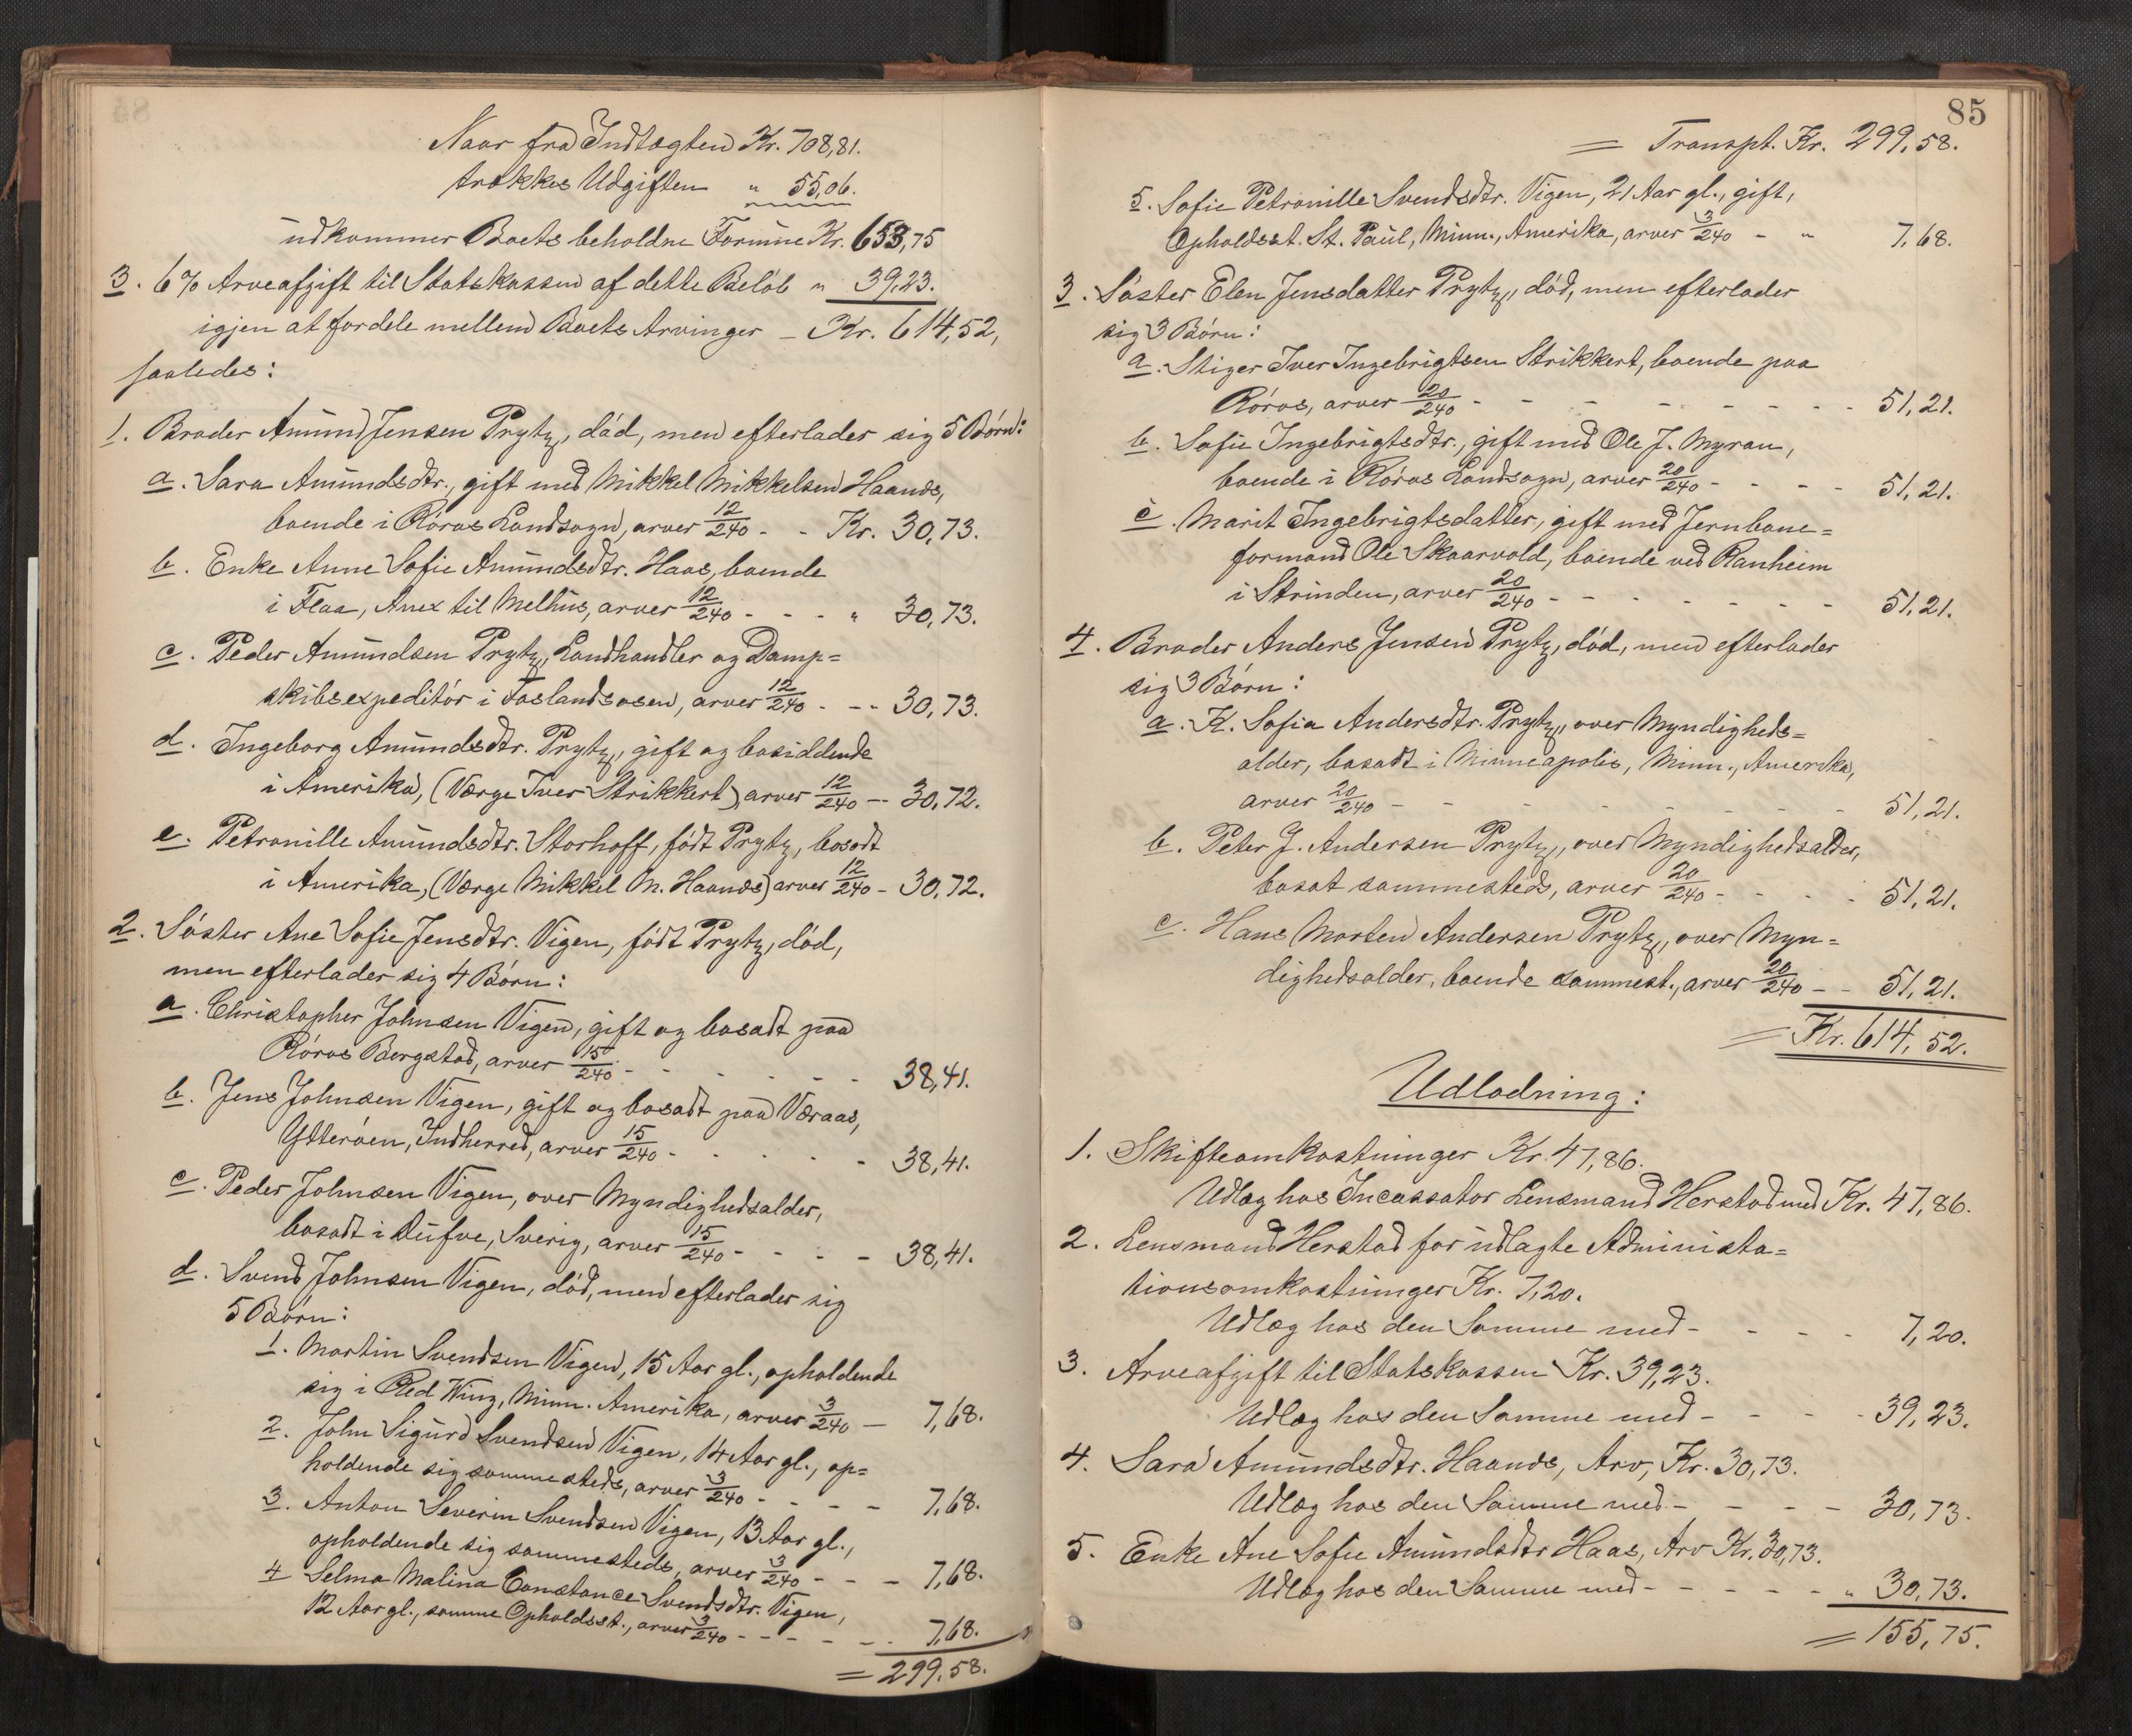 Naar fra Indtægten Kr. 708,81.
trækkes Udgiften " 55,06.
udkommer Boets beholdne Formue Kr. 653,75
3. 6% Arveafgift til Statskassen af dette Beløb " 39,23.
igjen at fordele mellem Boets Arvinger - Kr. 614,52,
saaledes:
1. Broder Amund Jensen Prytz, død, men efterlader sig 5 Børn:
a. Sara Amundsdtr., gift med Mikkel Mikkelsen Haanæs,
boende i Røros Landsogn, arver 12/240 - - Kr. 30,73.
b. Enke Anne Sofie Amundsdtr. Haas, boende
i Flaa, Anex til Melhus, arver 12/240 - - - " 30,73.
c. Peder Amundsen Prytz, Landhandler og Damp=
skibsexpeditør i Foslandsosen, arver 12/240 - -- 30,73.
d. Ingeborg Amundsdtr. Prytz, gift og bosiddende
i Amerika, (Værge Iver Strikkert), arver 12/240 -- 30,72.
e. Petronille Amundsdtr. Storhoff, født Prytz, bosadt
i Amerika, (Værge Mikkel M. Haanæs) arver 12/240 - 30,72.
2. Søster Ane Sofie Jensdtr. Vigen, født Prytz, død,
men efterlader sig 4 Børn:
a. Christopher Johnsen Vigen, gift og bosadt paa
Røros Bergstad, arver 15/240 - - - - - - 38,41.
b. Jens Johnsen Vigen, gift og bosadt paa Væraas,
Ytterøen, Indherred, arver 15/240 - - - - - 38,41.
c. Peder Johnsen Vigen, over Myndighedsalder,
bosadt i Dufve, Sverig, arver 15/240 - - - - 38,41.
d. Svend Johnsen Vigen, død, men efterlader sig
5 Børn:
1. Martin Svendsen Vigen, 15 Aar gl., opholdende
sig i Red Wing, Minn. Amerika, arver 3/240 - 7,68.
2. John Sigurd Svendsen Vigen, 14 Aar gl., op=
holdende sig sammesteds, arver 3/240 - - - - 7,68.
3. Anton Severin Svendsen Vigen, 13 Aar gl.,
opholdende sig sammesteds, arver 3/240 - - - 7,68.
4 Selma Malina Constance Svendsdtr. Vigen,
12 Aar gl., samme Opholdsst., arver 3/240 - - - - - 7,68.
= 299,58.
85
= Transpt. Kr. 299,58.
5. Sofie Petronille Svendsdtr. Vigen, 21 Aar gl., gift,
Opholdsst. St. Paul, Minn., Amerika, arver 3/240 - " 7,68.
3. Søster Elen Jensdatter Prytz, død, men efterlader
sig 3 Børn:
a. Stiger Iver Ingebrigtsen Strikkert, boende paa
Røros, arver 20/240 - - - - - - - - 51,21.
b. Sofie Ingebrigtsdtr., gift med Ole J. Myran,
boende i Røros Landsogn, arver 20/240 - - - - 51,21.
c. Marit Ingebrigtsdatter, gift med Jernbane=
formand Ole Skaarvold, boende ved Ranheim
i Strinden, arver 20/240 - - - - - - - 51,21.
4. Broder Anders Jensen Prytz, død, men efterlader
sig 3 Børn:
a. K. Sofia Andersdtr. Prytz, over Myndigheds=
alder, bosadt i Minneapolis, Minn., Amerika,
arver 20/240 - - - - - - - 51,21.
b. Peter J. Andersen Prytz, over Myndighedsalder,
bosat sammesteds, arver 20/240 - - - - 51,21.
c. Hans Morten Andersen Prytz, over Myn=
dighedsalder, boende sammest., arver 20/240 - - 51,21.
= Kr. 614,52.
Udlodning:
1. Skifteomkostninger Kr. 47,86.
Udlæg hos Incassator Lensmand Herstad med Kr. 47,86.
2. Lensmand Herstad for udlagte Administa=
tionsomkostninger Kr. 7,20.
Udlæg hos den Samme med - - - - 7,20.
3. Arveafgift til Statskassen Kr. 39,23.
Udlæg hos den Samme med - - - - 39,23.
4. Sara Amundsdtr. Haanæs, Arv, Kr. 30,73.
Udlæg hos den Samme med - - - - 30,73.
5. Enke Ane Sofie Amundsdtr Haas, Arv Kr. 30,73.
Udlæg hos den Samme med - - - - - " 30,73.
= 155,75.